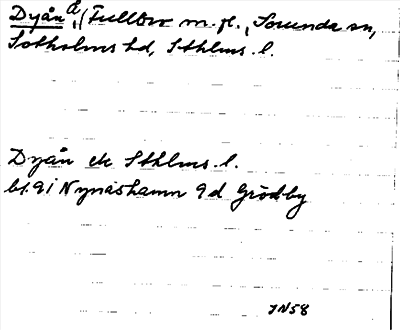 Dyån å, Fullbro m.fl., Sorunda sn,
Sotholms hd, Sthlms l.
Dyån ek Sthlms l.
bl. 9i Nynäshamn 9d Grödby
JN58